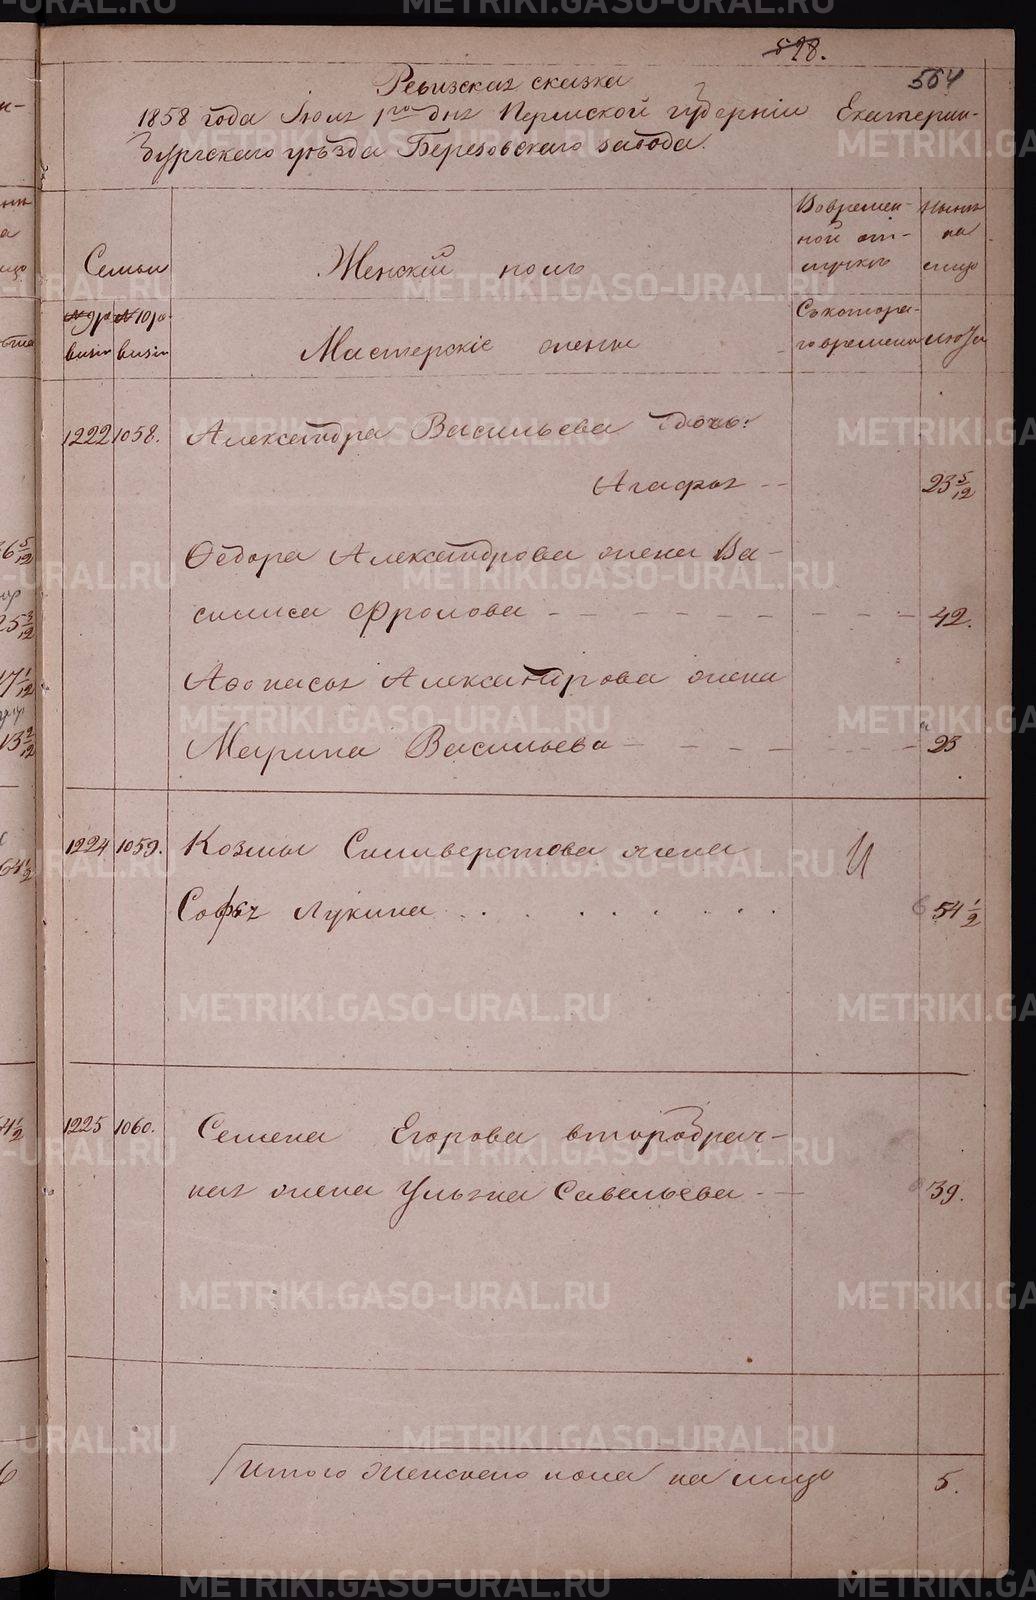 598.
564
Ревизская сказка
1858 года Іюля 1го дня Пермской губерніи Екатерин-
бургскаго уѣзда Березовскаго завода.
Семьи
Женскій полъ
Вовремен-
ной от-
лучкѣ
Нынѣ
на
лицо
№ 9 ре-
визіи
№ 10 ре-
визіи
Мастерскіе жены
Съ котора-
го времени
лѣта
1222 1058. Александра Васильева дочь:
Агафья - - 23 5/12
Ѳедора Александрова жена Ва-
силиса Фролова - - - - - - - 42.
Аѳонасья Александрова жена
Марина Васильева - - - - - - 23
1224 1059. Козмы Силиверстова жена
Софья Лукина . . . . . . . . . 54 1/2
1225 1060. Семена Егорова второбрач-
ная жена Ульяна Савельева - - 39.
Итого женскаго пола на лицо 5.
METRIKI.GASO-URAL.RU